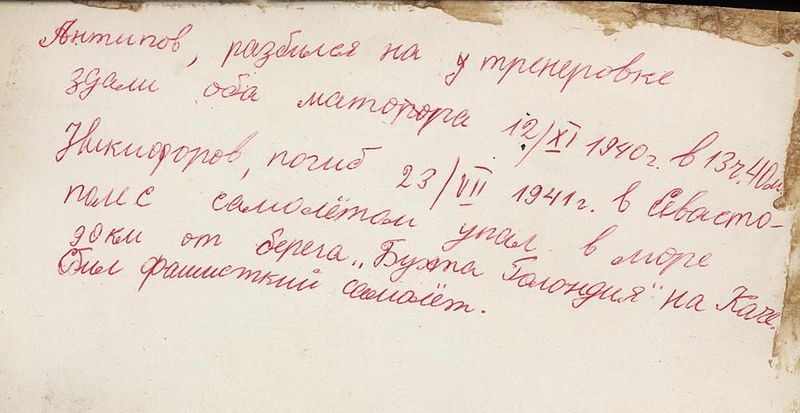 Антипов, разбился на утренеровке
здали оба матопора 12/XI 1940г. в 13ч.40м.
Никифоров, погиб 23/VII 1941г. в Севасто-
поле с самолётом упал в море
30км от берега „Бухта Голондия" на Каче.
Сбил фашисткий самолёт.